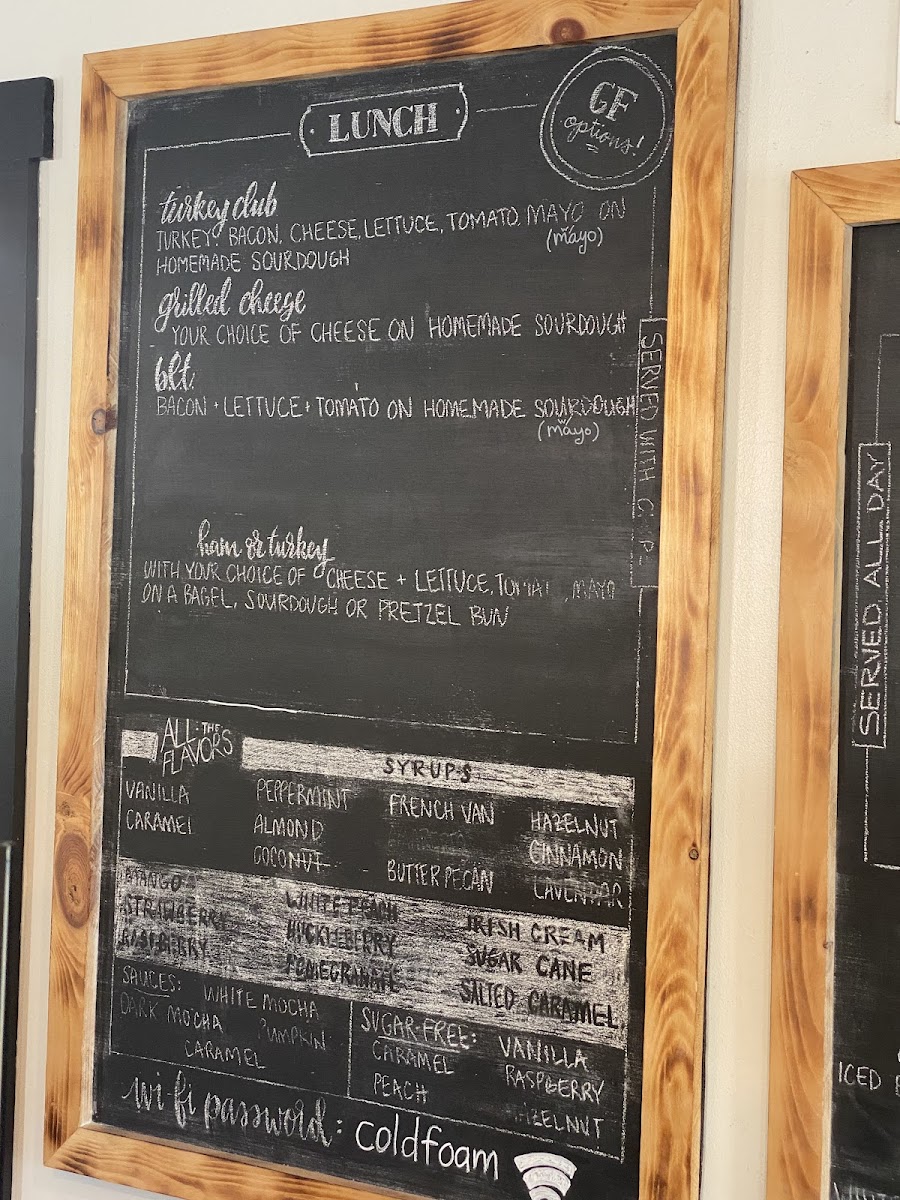 LUNCH
GF
options!
turkey club
TURKEY, BACON, CHEESE, LETTUCE, TOMATO, MAYO ON
(mayo)
HOMEMADE SOURDOUGH
grilled cheese
YOUR CHOICE OF CHEESE ON HOMEMADE SOURDOUGH
blt
BACON + LETTUCE + TOMATO ON HOMEMADE SOURDOUGH
(mayo)
SERVED WITH
ham or turkey
WITH YOUR CHOICE OF CHEESE + LETTUCE, MAYO
ON A BAGEL, SOURDOUGH OR PRETZEL BUN
ALL THE
FLAVORS
SYRUPS
VANILLA PEPPERMINT FRENCH VAN HAZELNUT
CARAMEL ALMOND CINNAMON
COCONUT BUTTER PECAN LAVENDAR
MANGO WHITE PEACH IRISH CREAM
STRAWBERRY HUCKLEBERRY SUGAR CANE
RASPBERRY POMEGRANATE SALTED CARAMEL
SAUCES: WHITE MOCHA
DARK MOCHA PUMPKIN
CARAMEL
SUGAR-FREE: VANILLA
CARAMEL RASPBERRY
PEACH HAZELNUT
wifi password: coldfoam
SERVED ALL DAY
ICED